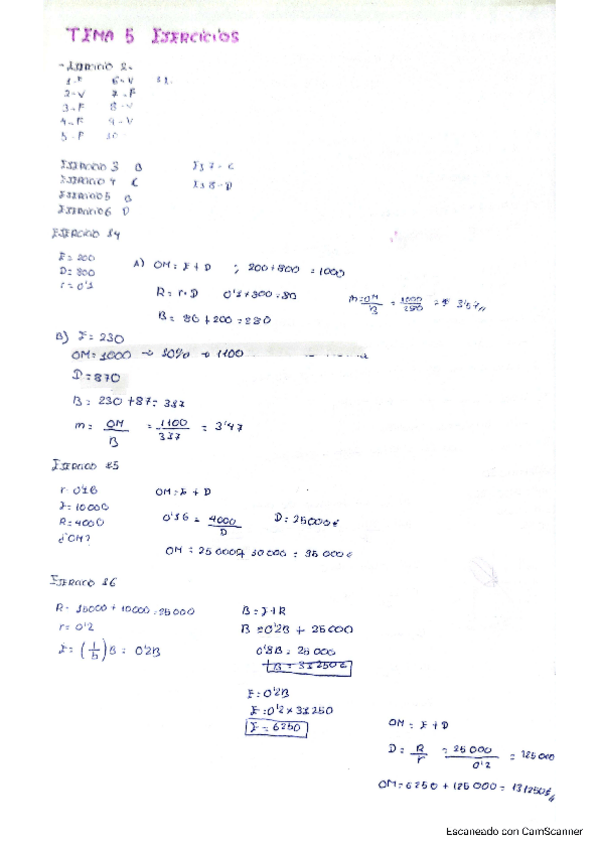 TEMA 5 EJERCICIOS
2-V 7-F
3-F 8-V
4-F 9-V
5-F
EJERCICIO 3 B EJ 7-C
EJERCICIO 4 C EJ 8-D
EJERCICIO 5 B
EJERCICIO 6 D
EJERCICIO 14
E = 200
D = 800
r = 0'1
A) OM = E + D ; 200 + 800 = 1000
R = r · D 0'1 * 800 = 80
B = 80 + 200 = 280
m = OM/B = 1000/280 = 3'57
B) E = 230
OM = 1000 → 10% → 1100
D = 870
B = 230 + 87 = 317
m = OM/B = 1100/317 = 3'47
EJERCICIO 15
r = 0'16
E = 10000
R = 4000
¿OM?
OM = E + D
0'16 = 4000/D D = 25000€
OM = 25000 + 10000 = 35000€
EJERCICIO 16
R = 15000 + 10000 = 25000
r = 0'2
E = (1/5)B = 0'2B
B = E + R
B = 0'2B + 25000
0'8B = 25000
B = 31250€
E = 0'2B
E = 0'2 × 31250
E = 6250
OM = E + D
D = R/r = 25000/0'2 = 125000
OM = 6250 + 125000 = 131250€
Escaneado con CamScanner